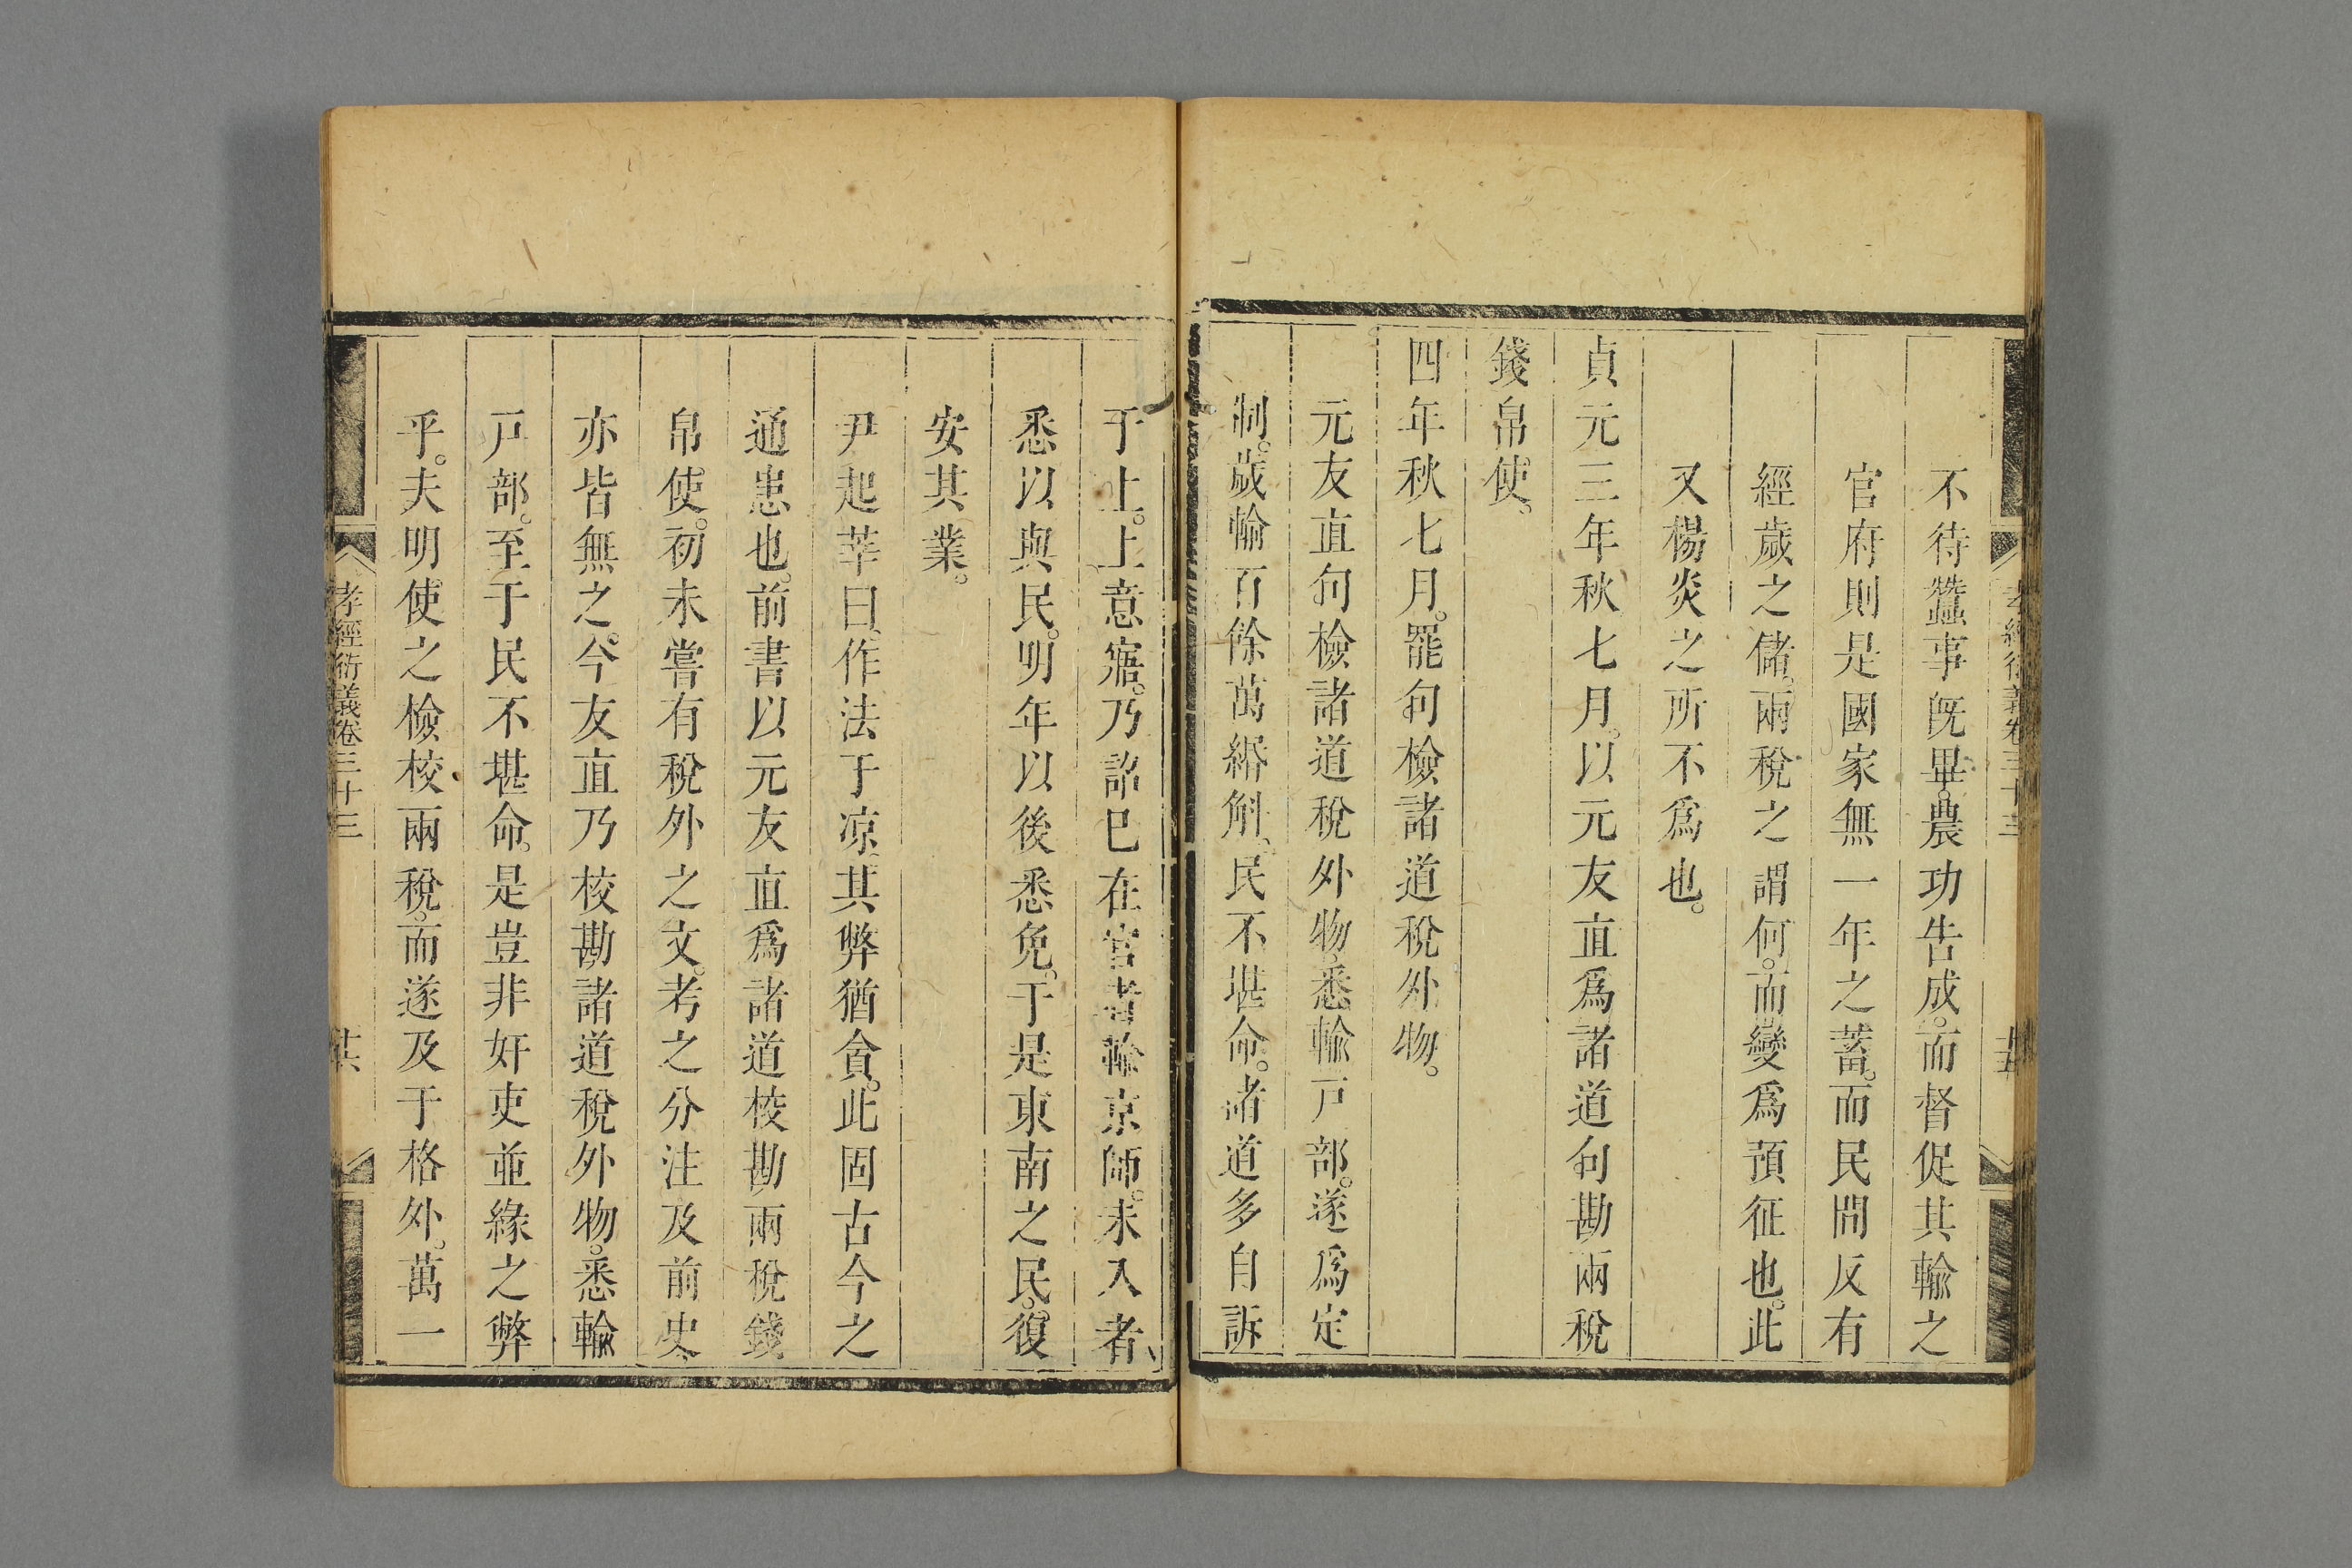 孝經衍義卷三十三
不待蠶事既畢。農功告成。而督促其輸之
官府則是國家無一年之蓄。而民間反有
經歲之儲。兩稅之謂何。而變爲預征也。此
又楊炎之所不爲也。
貞元三年秋七月。以元友直爲諸道句勘兩稅
錢帛使。
四年秋七月。罷句檢諸道稅外物。
元友直句檢諸道稅外物。悉輸戸部。遂爲定
制。歲輸百餘萬緡斛。民不堪命。諸道多自訴
于上。上意寤。乃詔巳在官者輸京師。未入者、
悉以與民。明年以後悉免。于是東南之民。復
安其業。
尹起莘曰。作法于凉。其弊猶貪。此固古今之
通患也。前書以元友直爲諸道校勘兩稅錢
帛使。初未嘗有稅外之文。考之分注及前史、
亦皆無之。今友直乃校勘諸道稅外物。悉輸
戸部。至于民不堪命。是豈非奸吏並緣之弊
乎。夫明使之檢校兩稅。而遂及于格外。萬一
孝經衍義卷三十三